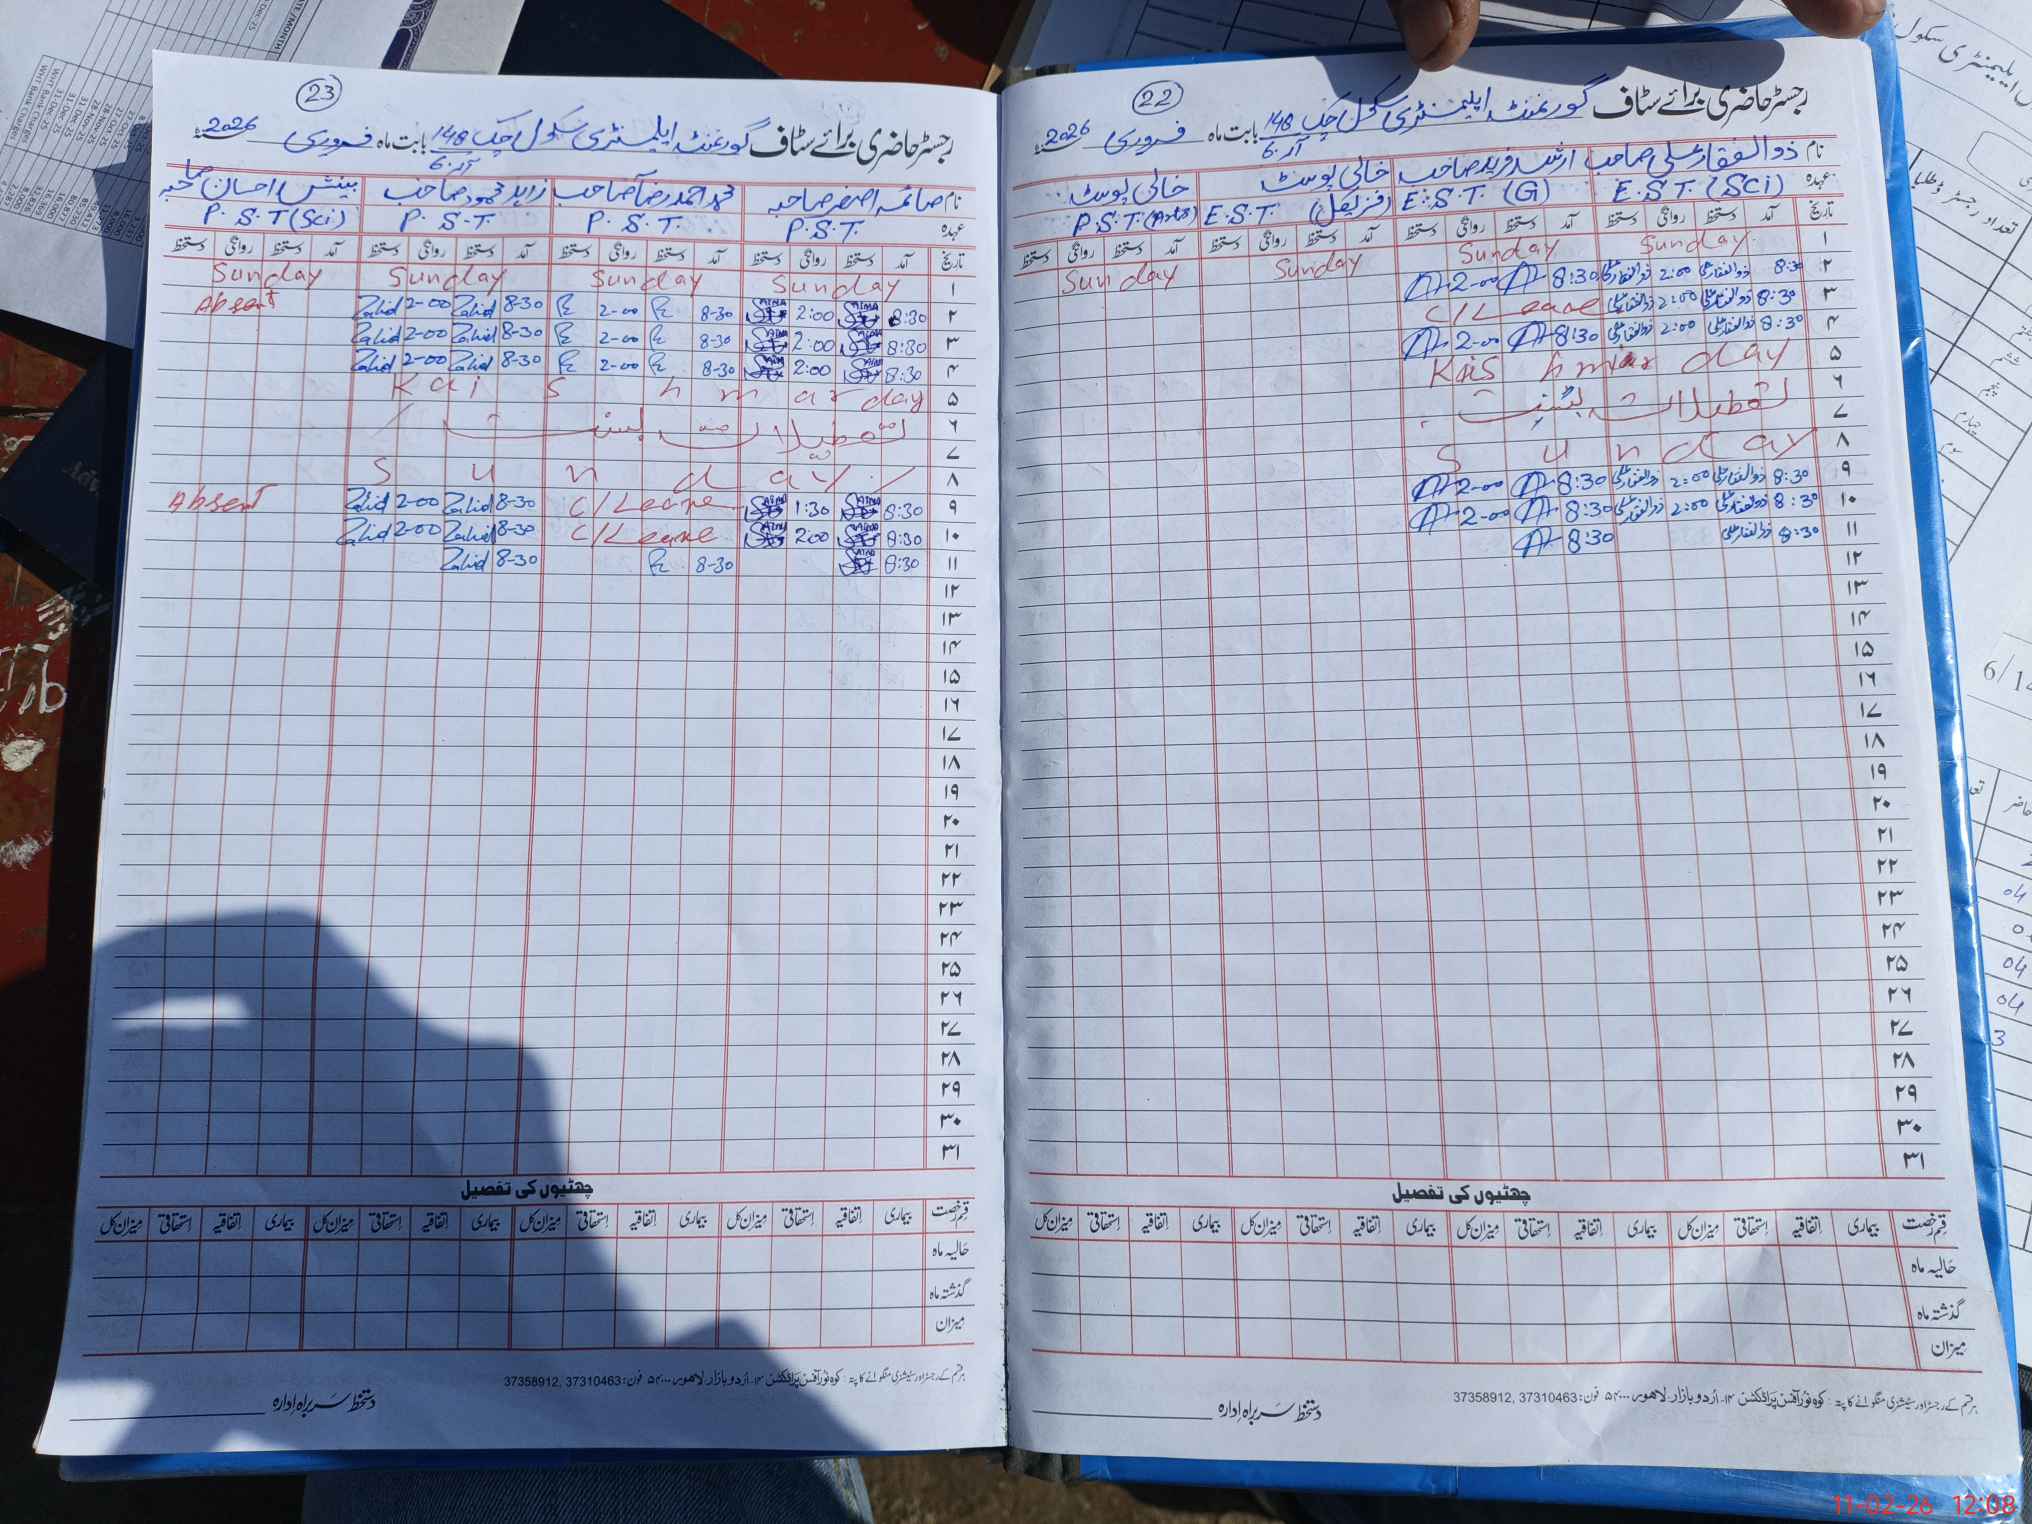 22
رجسٹر حاضری برائے سٹاف گورنمنٹ ایلیمنٹری سکول چک 148 بابت ماہ فروری 2026
6.آر
نام ذوالفقار علی صاحب ارشد فرید صاحب خالی پوسٹ خالی پوسٹ
عہدہ E.S.T. (Sci) E.S.T. (G) E.S.T. (فزیکل) P.S.T. (Arts)
تاریخ آمد دستخط روانگی دستخط آمد دستخط روانگی دستخط آمد دستخط روانگی دستخط آمد دستخط روانگی دستخط
۱ Sunday Sunday Sunday Sunday
۲ 8:30 ذوالفقار علی 2:00 ذوالفقار علی 8:30 2-00
۳ 8:30 ذوالفقار علی 2:00 ذوالفقار علی C/Leave
۴ 8:30 ذوالفقار علی 2:00 ذوالفقار علی 8:30 2-00
۵ Kaishmar day
۶ تعطیلات بسنت
۷
۸ Sunday
۹ 8:30 ذوالفقار علی 2:00 ذوالفقار علی 8:30 2-00
۱۰ 8:30 ذوالفقار علی 2:00 ذوالفقار علی 8:30 2-00
۱۱ 8:30 ذوالفقار علی 8:30
۱۲
۱۳
۱۴
۱۵
۱۶
۱۷
۱۸
۱۹
۲۰
۲۱
۲۲
۲۳
۲۴
۲۵
۲۶
۲۷
۲۸
۲۹
۳۰
۳۱
چھٹیوں کی تفصیل
قسم رخصت بیماری اتفاقیہ استحقاقی میزان کل بیماری اتفاقیہ استحقاقی میزان کل بیماری اتفاقیہ استحقاقی میزان کل بیماری اتفاقیہ استحقاقی میزان کل
حالیہ ماہ
گذشتہ ماہ
میزان
ہر قسم کے رجسٹر اور سٹیشنری منگوانے کا پتہ : کوہ نور آفس پراڈکٹس ۱۴- اردو بازار لاہور ۵۴۰۰۰ فون: 37310463 ,37358912
دستخط سربراہ ادارہ
23
رجسٹر حاضری برائے سٹاف گورنمنٹ ایلیمنٹری سکول چک 148 بابت ماہ فروری 2026
6.آر
نام صائمہ اصغر صاحبہ محمد احمد رضا صاحب زاہد محمود صاحب بینش احسان صاحبہ
عہدہ P.S.T. P.S.T. P.S.T. P.S.T (Sci)
تاریخ آمد دستخط روانگی دستخط آمد دستخط روانگی دستخط آمد دستخط روانگی دستخط آمد دستخط روانگی دستخط
۱ Sunday Sunday Sunday Sunday
۲ 8:30 2:00 8-30 2-00 8-30 Zahid 2-00 Zahid Absent
۳ 8:30 2:00 8-30 2-00 8-30 Zahid 2-00 Zahid
۴ 8:30 2:00 8-30 2-00 8-30 Zahid 2-00 Zahid
۵ Kaishmar day
۶ تعطیلات بسنت
۷
۸ Sunday
۹ 8:30 1:30 C/Leave 8-30 Zahid 2-00 Zahid Absent
۱۰ 8:30 2:00 C/Leave 8-30 Zahid 2-00 Zahid
۱۱ 8:30 8-30 8-30 Zahid
۱۲
۱۳
۱۴
۱۵
۱۶
۱۷
۱۸
۱۹
۲۰
۲۱
۲۲
۲۳
۲۴
۲۵
۲۶
۲۷
۲۸
۲۹
۳۰
۳۱
چھٹیوں کی تفصیل
قسم رخصت بیماری اتفاقیہ استحقاقی میزان کل بیماری اتفاقیہ استحقاقی میزان کل بیماری اتفاقیہ استحقاقی میزان کل بیماری اتفاقیہ استحقاقی میزان کل
حالیہ ماہ
گذشتہ ماہ
میزان
ہر قسم کے رجسٹر اور سٹیشنری منگوانے کا پتہ : کوہ نور آفس پراڈکٹس ۱۴- اردو بازار لاہور ۵۴۰۰۰ فون: 37310463 ,37358912
دستخط سربراہ ادارہ
11-02-26 12:08